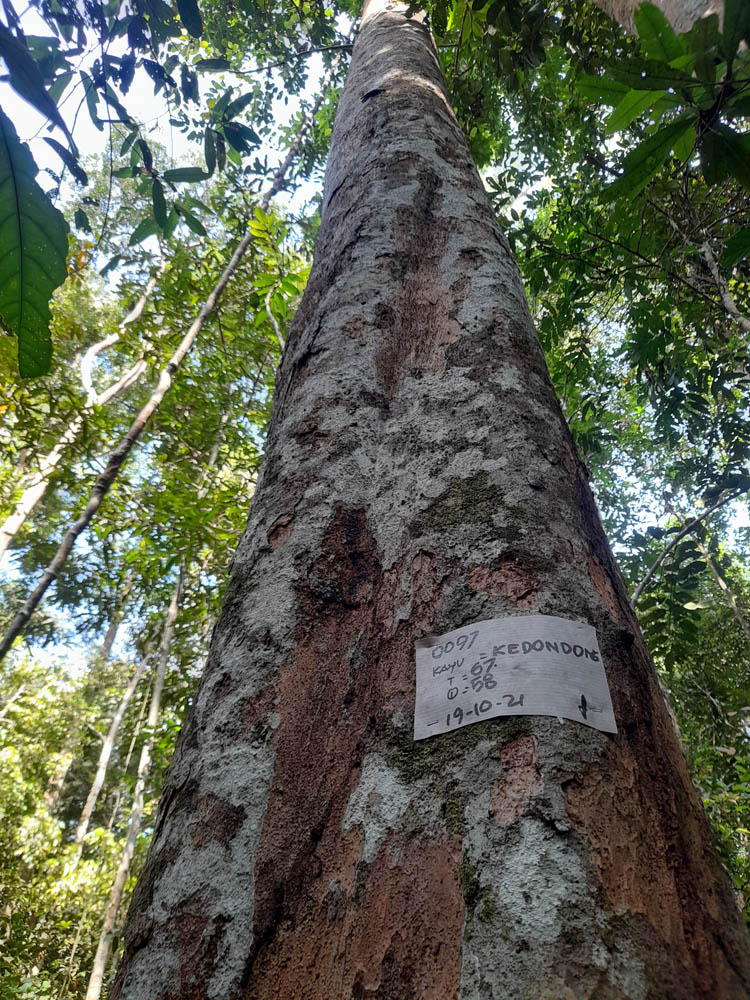 0097
KAYU = KEDONDONG
T = 67
Φ = 58
- 19-10-21